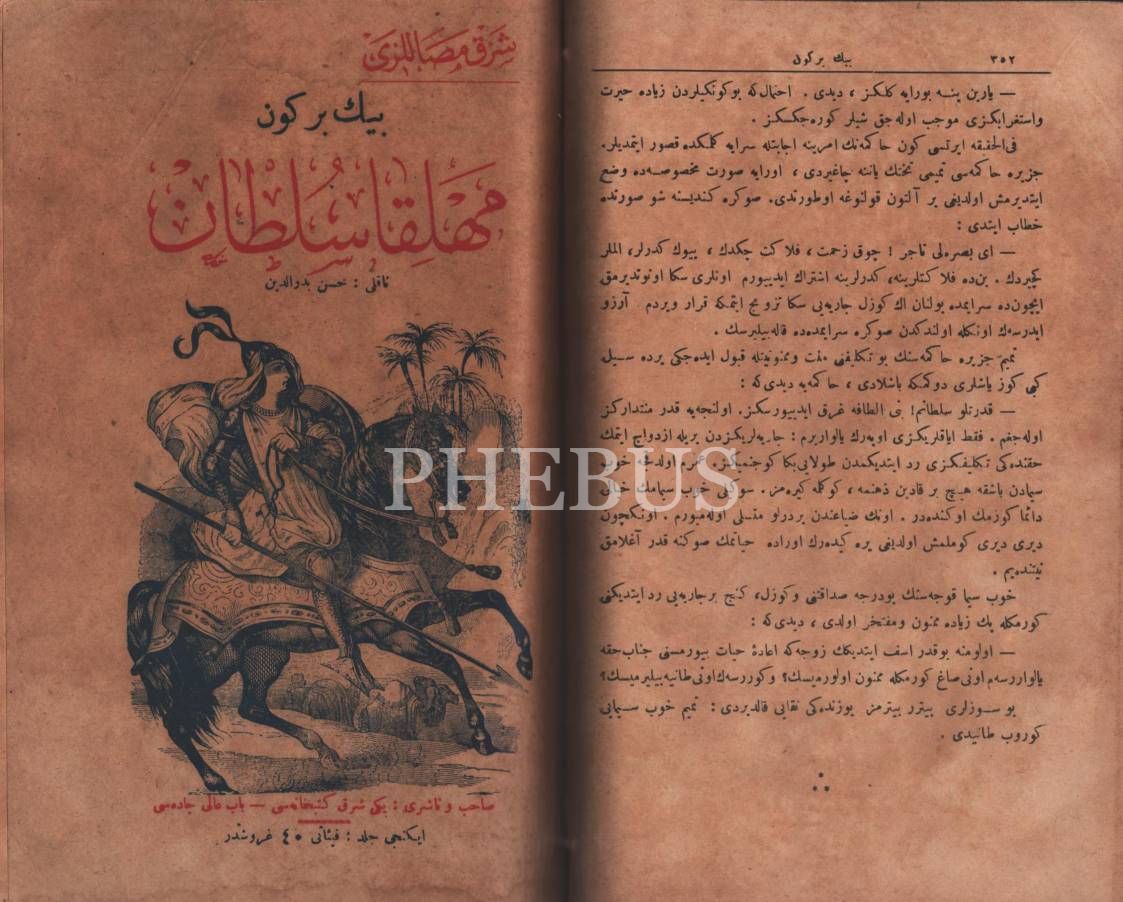 شرق مصاللری
بيك بر كون
مهلقا سلطان
ناقلی : حسن بدرالدين
صاحب و ناشری : يكی شرق كتبخانه‌سی — باب عالی جاده‌سی
ايكنجی جلد : فيئاتی ٤٠ غروشدر
PHEBUS
٣٥٢
بيك بر كون
— يارين ينه بورايه كلكز ، ديدی . احتمال كه بوكونكيلردن زياده حيرت
واستغرابكزی موجب اوله‌جق شيلر كوره‌جكسكز .
فی‌الحقيقه ايرتسی كون حاكمه‌نك امرينه اجابتله سرايه كلمكده قصور ايتمديلر.
جزيره حاكمه‌سی تميمی تختك ياننه چاغيردی ، اورايه صورت مخصوصه‌ده وضع
ايتديرمش اولديغی بر آلتون قولتوغه اوطورتدی. صوكره كنديسنه شو صورتده
خطاب ايتدی :
— ای بصره‌لی تاجر ! چوق زحمت ، فلاكت چكدك ، بيوك كدرلر، الملر
كچيردك . بن‌ده فلاكتلرينه، كدرلرينه اشتراك ايديیورم اونلری سكا اونوتديرمق
ايچون‌ده سرايمده بولنان اك كوزل جاريه‌يی سكا تزويج ايتمكه قرار ويردم آرزو
ايدرسه‌ك اونكله اولندكدن صوكره سرايمده‌ده قاله‌بيليرسك .
تميم جزيره حاكمه‌سنك بو تكليفنی منت وممنونيتله قبول ايده‌جكی يرده سيل
كبی كوز ياشلری دوكمكه باشلادی ، حاكمه‌يه ديدی‌كه :
— قدرتلو سلطانم! بنی الطافه غرق ايدييورسكز. اولنجه‌يه قدر منتداركز
اوله‌جغم . فقط اياقلريكزی اوپه‌رك يالواريرم : جاريه‌لريكزدن بريله ازدواج ايتمك
حقنده‌كی تكليفكزی رد ايتديكمدن طولايی بكا كوجنميكز. اولدقجه خوب
سيمادن باشقه هيچ بر قادين ذهنمه ، كوكلمه كيره‌مز . سوكيلی خوب سيمامك خيالی
دائما كوزمك اوكنده‌در . اونك ضياعندن بردرلو متسلی اوله‌ميورم . اونكچون
ديری ديری كومولمش اولديغی يره كيده‌رك اوراده حياتمك صوكنه قدر آغلامق
نيتنده‌يم .
خوب سيما قوجه‌سنك بودرجه صداقتنی وكوزل، كنج برجاريه‌يی رد ايتديكنی
كورمكله پك زياده ممنون ومفتخر اولدی ، ديدی‌كه :
— اولومنه بوقدر اسف ايتديكك زوجه‌كه اعادۀ حيات بيورمسنی جناب‌حقه
يالواررسه‌م اونی صاغ كورمكله ممنون اولورميسك؟ وكوررسه‌ك اونی طانيه‌بيليرميسك؟
بو سوزلری بيترر بيترمز يوزنده‌كی نقابی قالديردی : تميم خوب سيمايی
كوروب طانيدی .